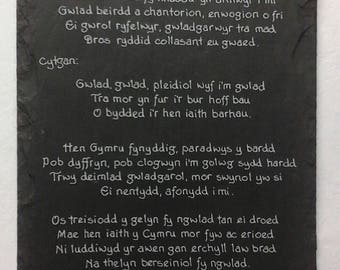 i mi
Gwlad beirdd a chantorion, enwogion o fri
Ei gwrol ryfelwyr, gwladgarwyr tra mad
Dros ryddid collasant eu gwaed.
Cytgan:
Gwlad, gwlad, pleidiol wyf i'm gwlad
Tra mor yn fur i'r bur hoff bau
O bydded i'r hen iaith barhau.
Hen Gymru fynyddig, paradwys y bardd
Pob dyffryn, pob clogwyn i'm golwg sydd hardd
Trwy deimlad gwladgarol, mor swynol yw si
Ei nentydd, afonydd i mi.
Os treisiodd y gelyn fy ngwlad tan ei droed
Mae hen iaith y Cymru mor fyw ac erioed
Ni luddiwyd yr awen gan erchyll law brad
Na thelyn berseiniol fy ngwlad.